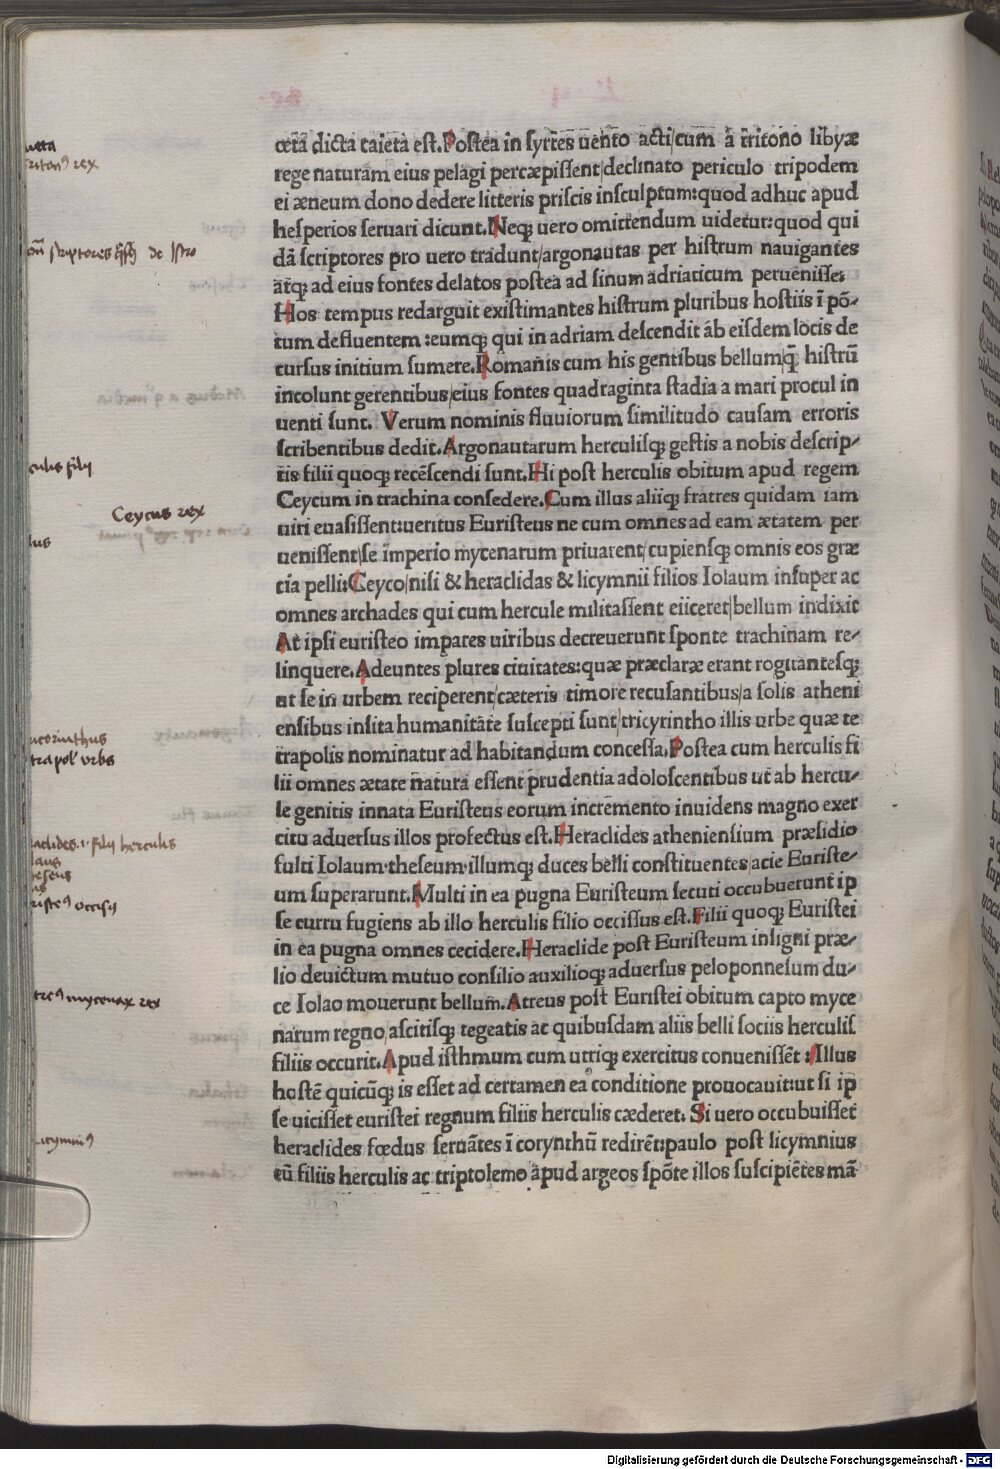 cetā dicta caieta est. Postea in syrtes uento acti/cum a tritono libyæ
rege naturam eius pelagi percæpissent/declinato periculo tripodem
ei æneum dono dedere litteris priscis insculptum:quod adhuc apud
hesperios seruari dicunt. Neq; uero omittendum uidetur:quod qui
dā scriptores pro uero tradunt/argonautas per histrum nauigantes
atq; ad eius fontes delatos postea ad sinum adriaticum peruenisse:
Hos tempus redarguit existimantes histrum pluribus hostiis ī pō-
tum defluentem :eumq; qui in adriam descendit ab eisdem locis de
cursus initium sumere. Romanis cum his gentibus bellum/q̄ histrū
incolunt gerentibus/eius fontes quadraginta stadia a mari procul in
uenti sunt. Verum nominis fluuiorum similitudo causam erroris
scribentibus dedit. Argonautarum herculisq; gestis a nobis descrip-
tis filii quoq; recēscendi sunt. Hi post herculis obitum apud regem
Ceycum in trachina consedere. Cum illus aliiq; fratres quidam iam
uiri euasissent:ueritus Euristeus ne cum omnes ad eam ætatem per
uenissent/se imperio mycenarum priuarent/cupiensq; omnis eos græ
cia pelli: Ceyco/nisi & heraclidas & licymnii filios Iolaum insuper ac
omnes archades qui cum hercule militassent eiiceret/bellum indixit
At ipsi euristeo impares uiribus decreuerunt sponte trachinam re-
linquere. Adeuntes plures ciuitates:quæ præclaræ erant rogitantesq;
ut se in urbem reciperent/cæteris timore recusantibus/a solis atheni
ensibus insita humanitate suscepti sunt/tricyrintho illis urbe quæ te
trapolis nominatur ad habitandum concessa. Postea cum herculis fi
lii omnes ætate natura essent prudentia adoloscentibus ut ab hercu-
le genitis innata Euristeus eorum incremento inuidens magno exer
citu aduersus illos profectus est. Heraclides atheniensium præsidio
fulti Iolaum·theseum·illumq; duces belli constituentes/acie Euriste-
um superarunt. Multi in ea pugna Euristeum secuti occubuerunt ip
se curru fugiens ab illo herculis filio occissus est. Filii quoq; Euristei
in ea pugna omnes cecidere. Heraclide post Euristeum insigni præ-
lio deuictum mutuo consilio auxilioq; aduersus peloponnesum du-
ce Iolao mouerunt bellum. Atreus post Euristei obitum capto myce
narum regno/ascitisq; tegeatis ac quibusdam aliis belli sociis herculis
filiis occurit. Apud isthmum cum utriq; exercitus conuenissēt : Illus
hostē quicūq; is esset ad certamen ea conditione prouocauit:ut si ip
se uicisset euristei regnum filiis herculis cæderet. Si uero occubuisset
heraclides fœdus seruātes ī corynthū redirēt:paulo post licymnius
cū filiis herculis ac triptolemo apud argeos spōte illos suscipiētes mā
scriptores
de Istro
Ceycus rex
urbs
filij herculis
rex
Digitalisierung gefördert durch die Deutsche Forschungsgemeinschaft - DFG